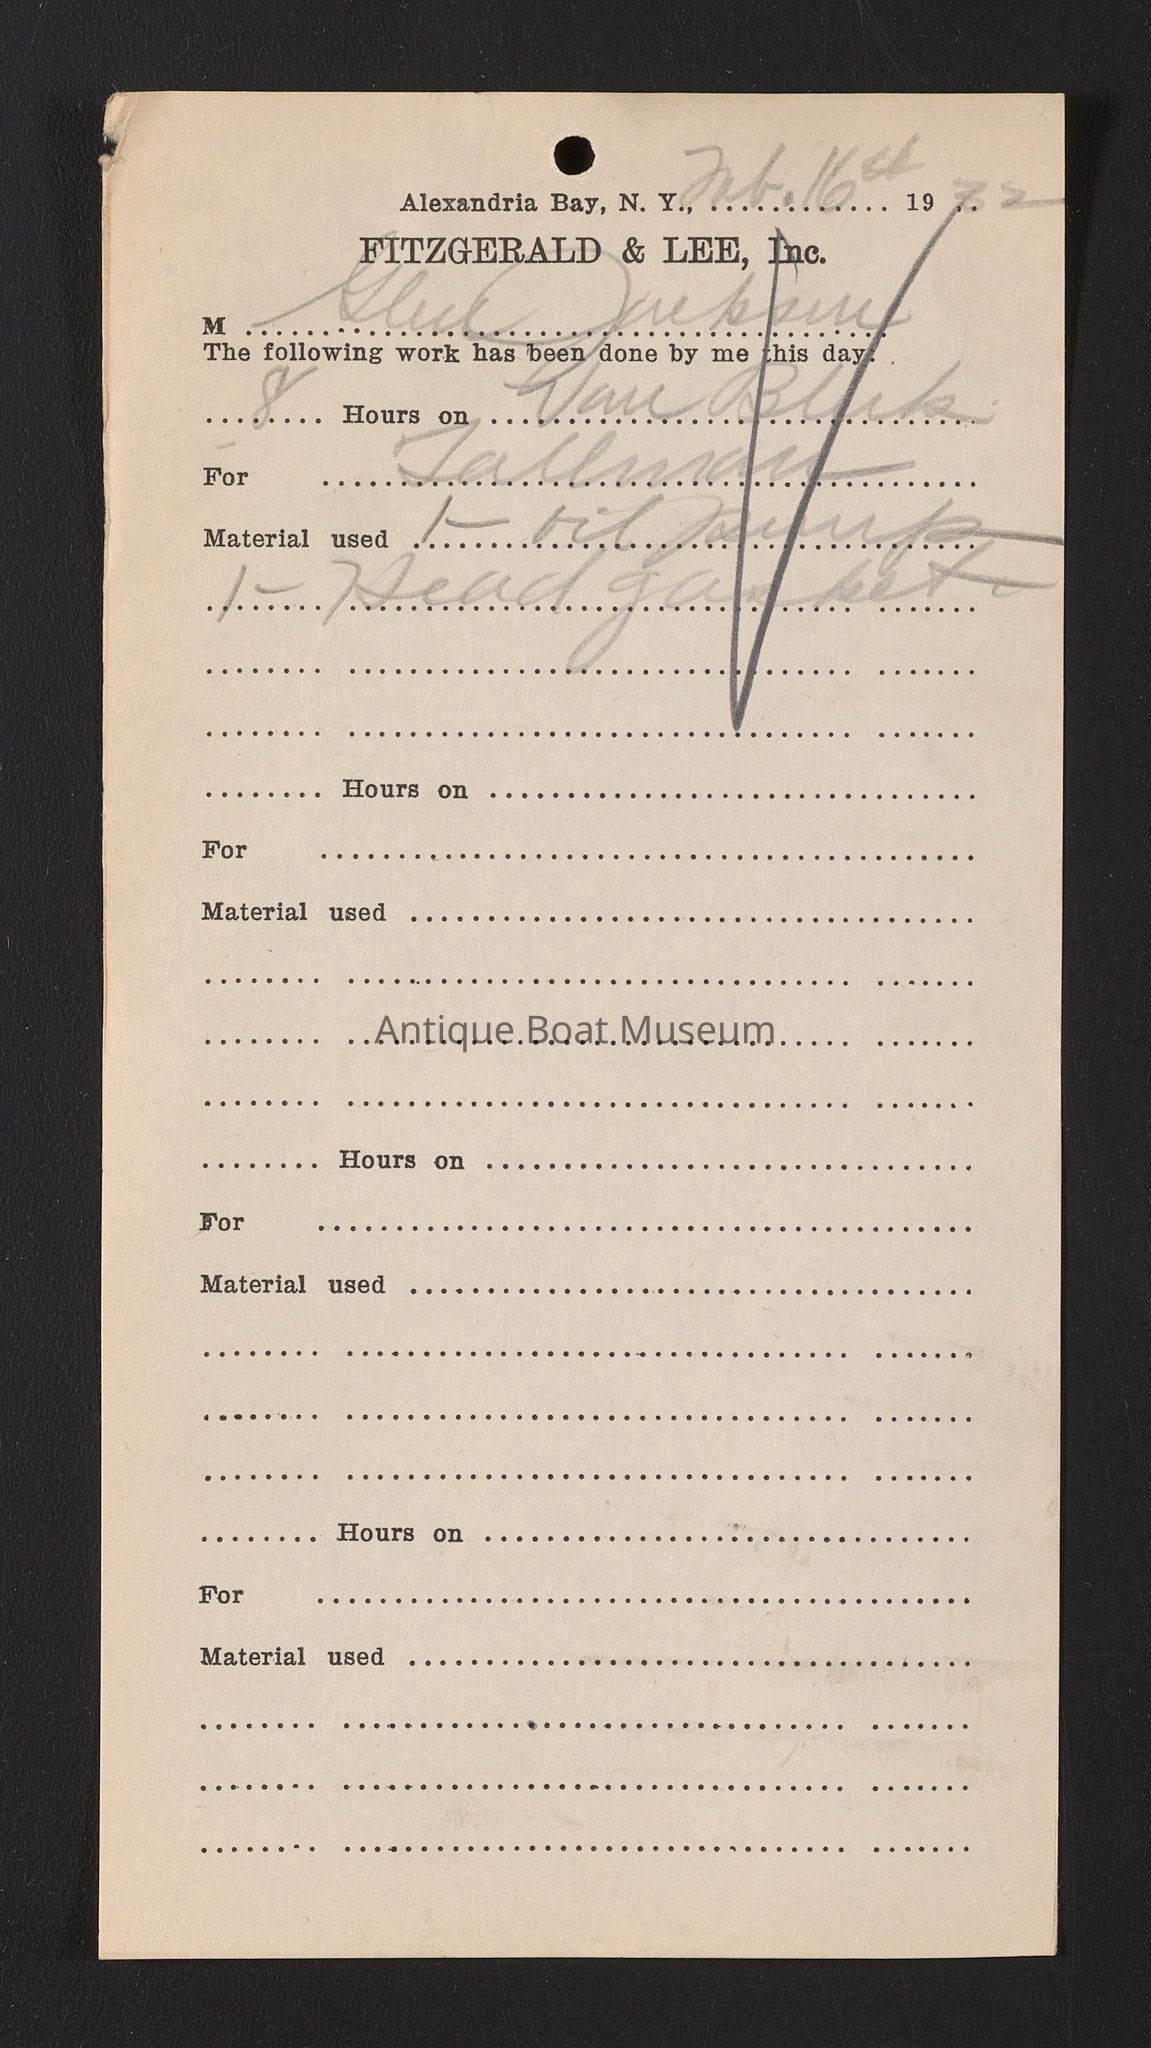 Alexandria Bay, N. Y., ............ 19 32
FITZGERALD & LEE, Inc.
M Glen Jackson
The following work has been done by me this day:
8 Hours on Van Blerk
For Tallman
Material used 1 - oil pump
1 - Head gasket
Hours on
For
Material used
Antique Boat Museum
Hours on
For
Material used
Hours on
For
Material used